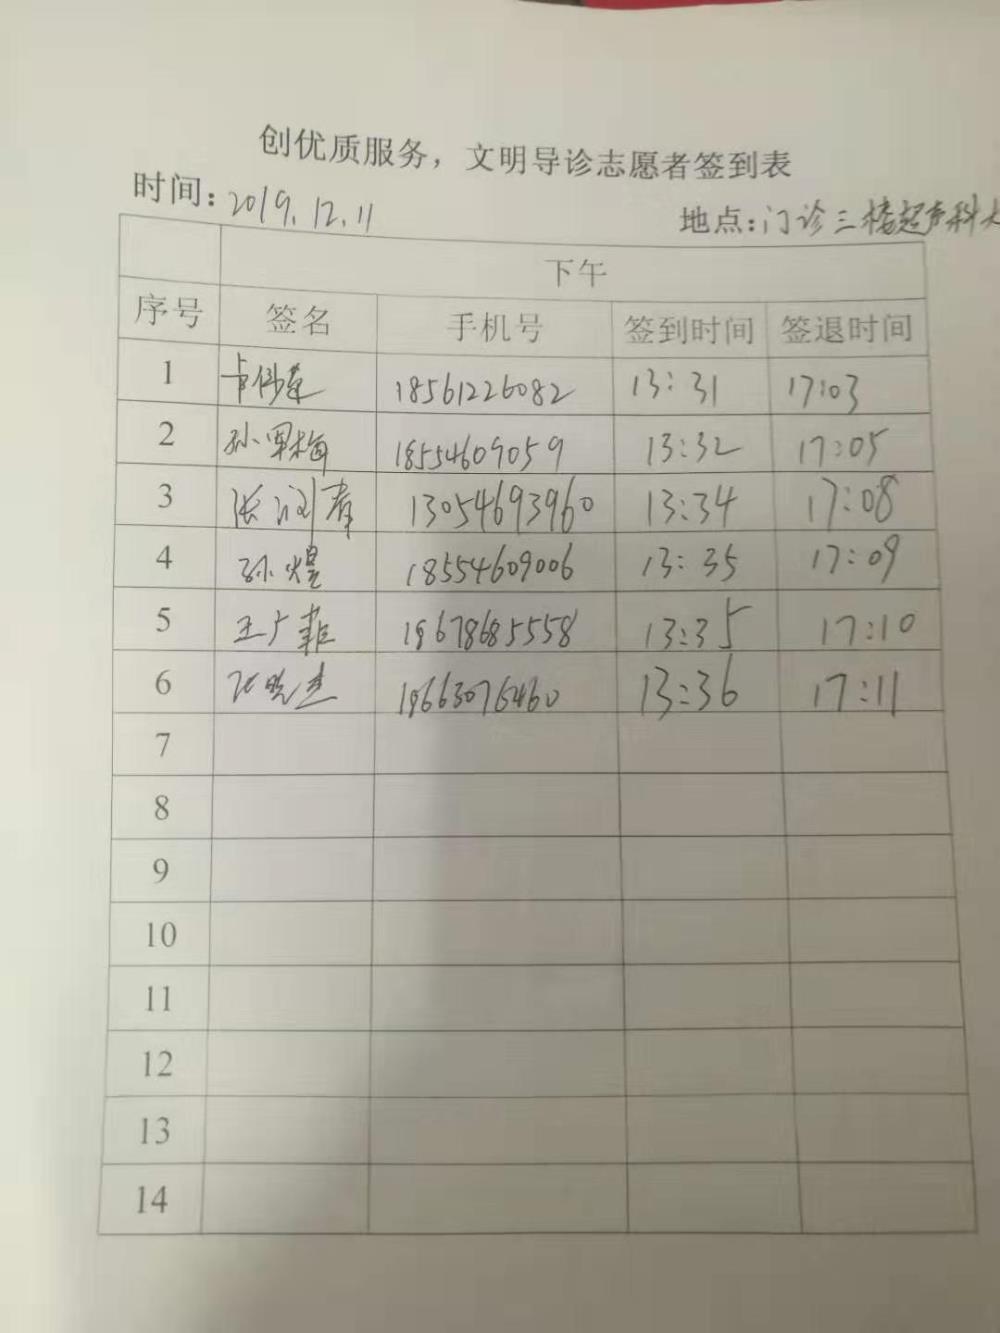 创优质服务，文明导诊志愿者签到表
时间：2019.12.11 地点：门诊三楼超声科
下午
序号 签名 手机号 签到时间 签退时间
1 18561226082 13:31 17:03
2 孙 梅 18554609059 13:32 17:05
3 张 春 13054693960 13:34 17:08
4 孙煜 18554609006 13:35 17:09
5 王广菲 19678685558 13:35 17:10
6 张晓杰 19663076460 13:36 17:11
7
8
9
10
11
12
13
14